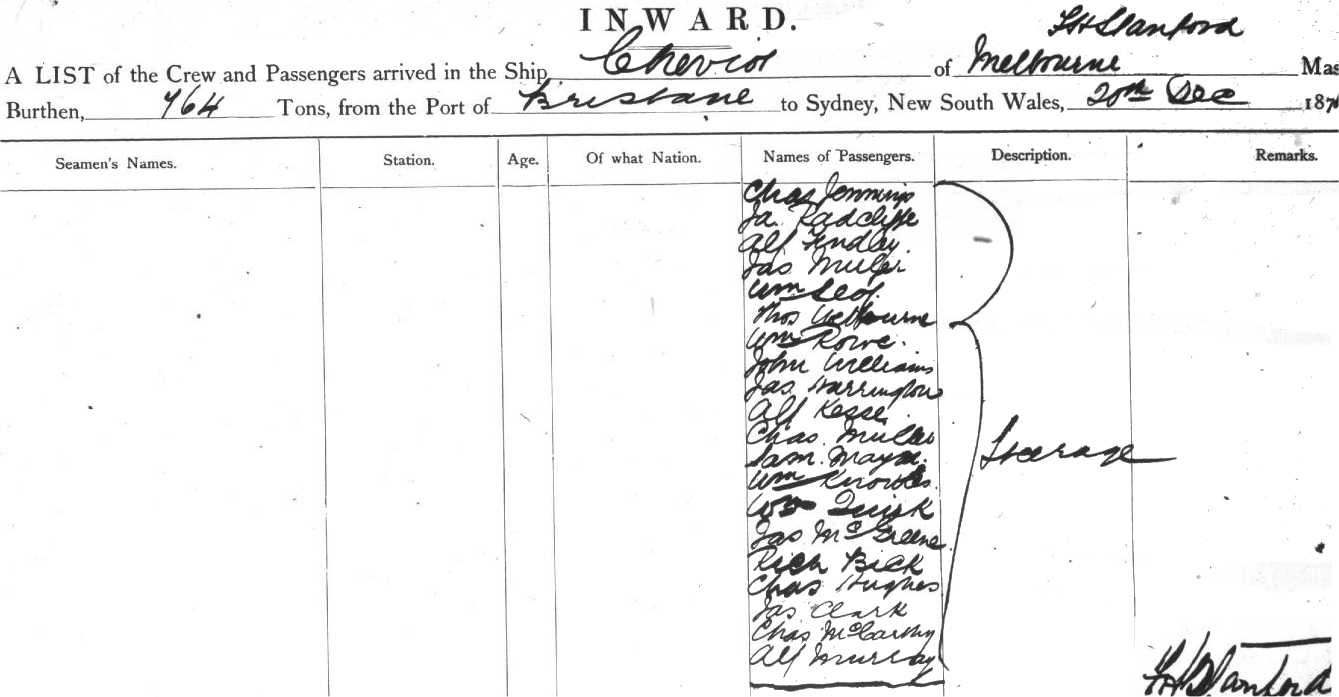 INWARD.
F H Stanford
A LIST of the Crew and Passengers arrived in the Ship Cheviot of Melbourne Mas
Burthen, 764 Tons, from the Port of Brisbane to Sydney, New South Wales, 20th Dec 187
Seamen's Names. Station. Age. Of what Nation. Names of Passengers. Description. Remarks.
Chas Jennings
Ja. Radcliffe
Alf Findley
Jas Muller
Wm
Thos Welbourne
Wm Rowe
John Williams
Jas. Harrington
Alf Kesse
Chas. Muller
Steerage
Sam. Mayne
Wm Knowles
Wm Quirk
Jas McGreene
Rich Bick
Chas Hughes
Jas Clark
Chas McCarthy
Alf Murray
F H Stanford